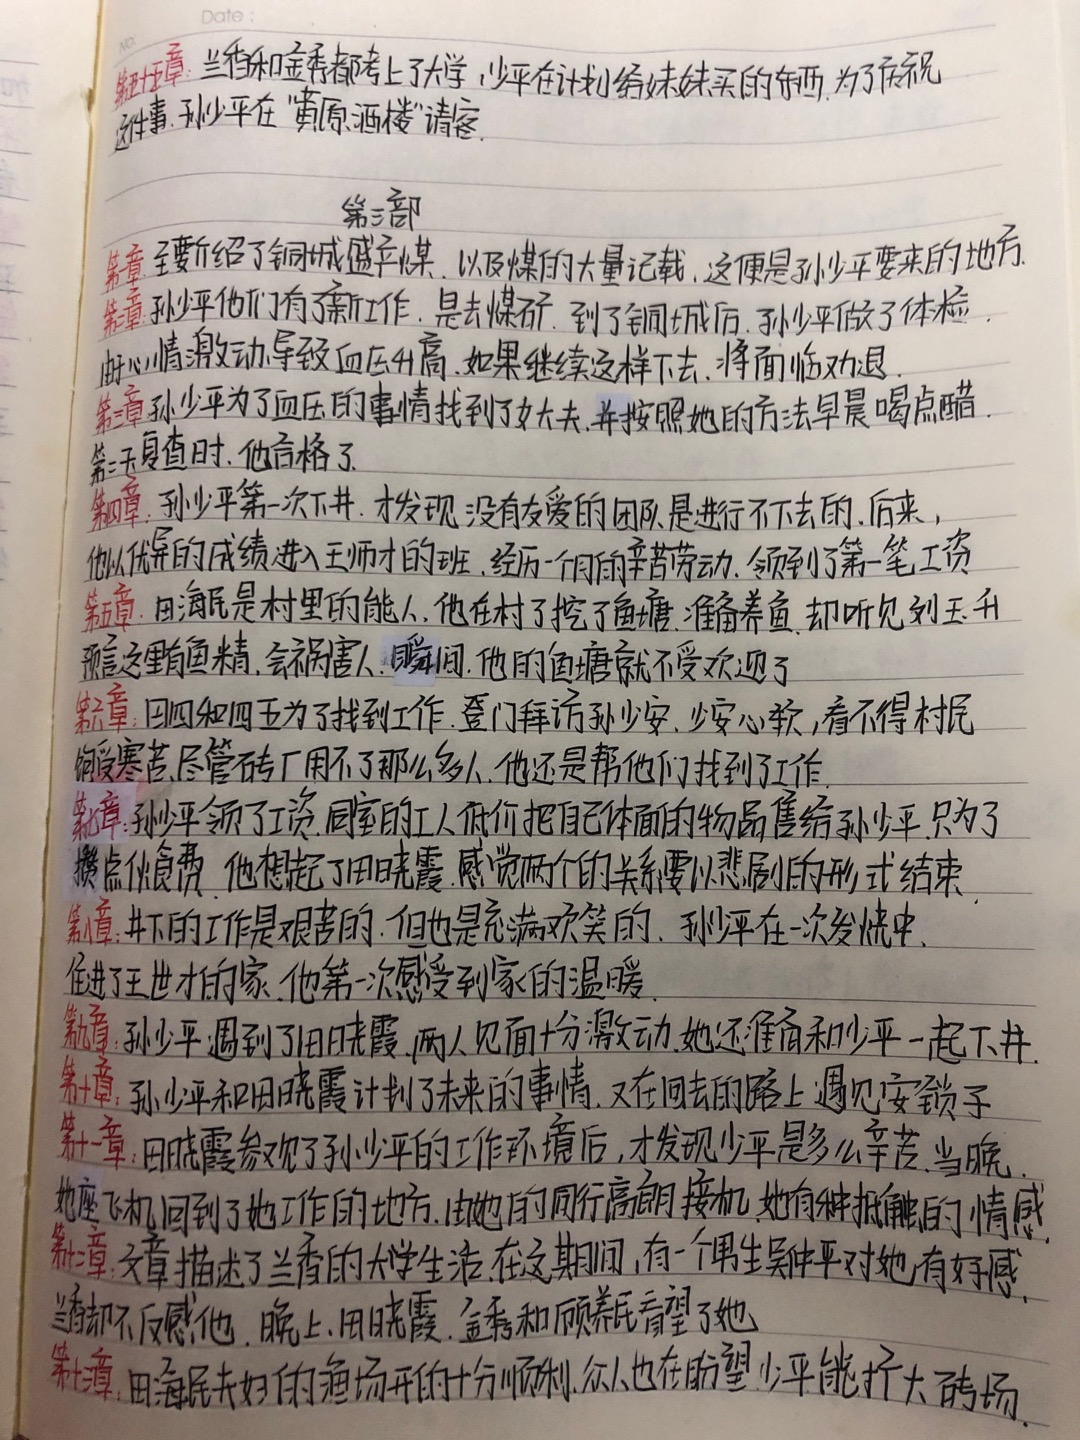 Date :
NO.
第五十五章：兰香和金秀都考上了大学，少平在计划给妹妹买的东西.为了庆祝
这件事.孙少平在“黄原酒楼”请客.
第三部
第一章:主要介绍了铜城盛产煤.以及煤的大量记载.这便是孙少平要来的地方.
第二章:孙少平他们有了新工作.是去煤矿.到了铜城后.孙少平做了体检.
由于心情激动.导致血压升高.如果继续这样下去.将面临劝退.
第三章:孙少平为了血压的事情找到了女大夫.并按照她的方法早晨喝点醋.
第二天复查时.他合格了.
第四章:孙少平第一次下井.才发现没有友爱的团队是进行不下去的.后来，
他以优异的成绩进入王师才的班.经历一个月的辛苦劳动.领到了第一笔工资
第五章:田海民是村里的能人.他在村了挖了鱼塘.准备养鱼.却听见刘玉升
预言这里有鱼精.会祸害人.瞬间.他的鱼塘就不受欢迎了
第六章:田四和四五为了找到工作.登门拜访孙少安.少安心软，看不得村民
饱受寒苦.尽管砖厂用不了那么多人.他还是帮他们找到了工作.
第七章:孙少平领了工资.同室的工人低价把自己体面的物品售给孙少平.只为了
攒点伙食费.他想起了田晓霞.感觉两个的关系要以悲剧的形式结束.
第八章:井下的工作是艰苦的.但也是充满欢笑的.孙少平在一次发烧中.
住进了王世才的家.他第一次感受到家的温暖.
第九章:孙少平遇到了田晓霞.两人见面十分激动.她还准备和少平一起下井.
第十章:孙少平和田晓霞计划了未来的事情.又在回去的路上遇见安锁子
第十一章:田晓霞参观了孙少平的工作环境后，才发现少平是多么辛苦.当晚.
她座飞机回到了她工作的地方.由她的同行高朗接机.她有种抵触的情感.
第十二章:文章描述了兰香的大学生活.在这期间，有一个男生吴仲平对她有好感.
兰香却不反感他.晚上.田晓霞.金秀和顾养民看望了她
第十三章:田海民夫妇的渔场开的十分顺利.众人也在盼望少平能扩大砖场.